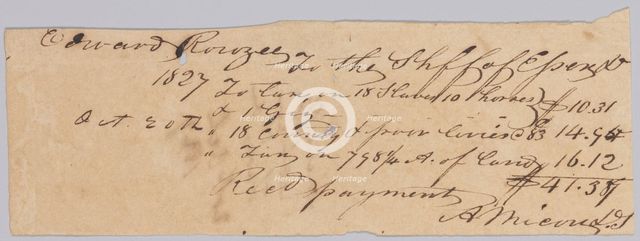 Edward Rowzee To the Shff of Essex Dr
1827 To Tax on 18 Slaves 10 horses
& 1 Gig $10.31
Oct. 20th " 18 County & poor levies @ 83 14.94
" Tax on 798 1/4 A. of Land 16.12
$41.37
Recd payment
A Micou D.S